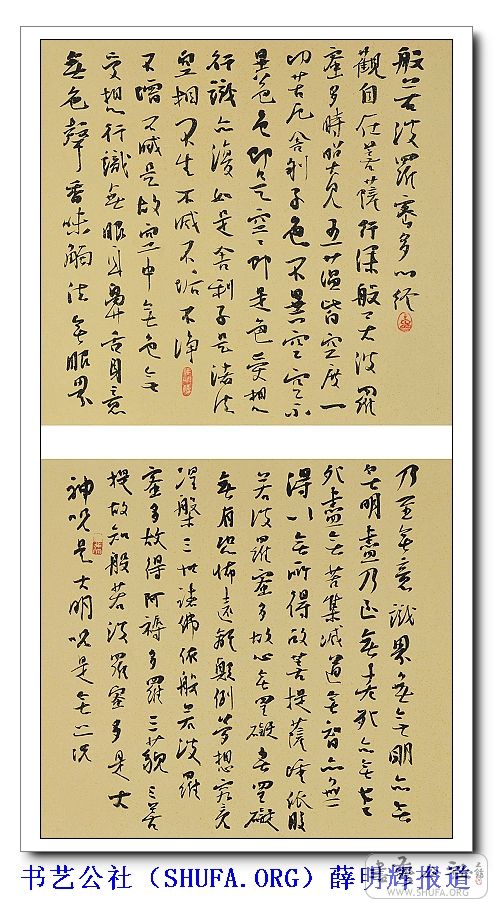 般若波羅蜜多心经
觀自在菩薩行深般若波羅
蜜多時照見五蕴皆空度一
切苦厄舍利子色不異空空不
異色色即是空空即是色受想
行識亦復如是舍利子是诸法
空相不生不滅不垢不净
不增不减是故空中無色無
受想行識無眼耳鼻舌身意
無色聲香味觸法無眼界
乃至無意識界無無明亦無
無明盡乃至無老死亦無老
死盡無苦集滅道無智亦無
得以無所得故菩提薩埵依般
若波羅蜜多故心無罣礙無罣礙
無有恐怖遠離顛倒夢想究竟
涅槃三世诸佛依般若波羅
蜜多故得阿耨多羅三藐三菩
提故知般若波羅蜜多是大
神咒是大明咒是無上咒
书艺公社（SHUFA.ORG）薛明辉报道